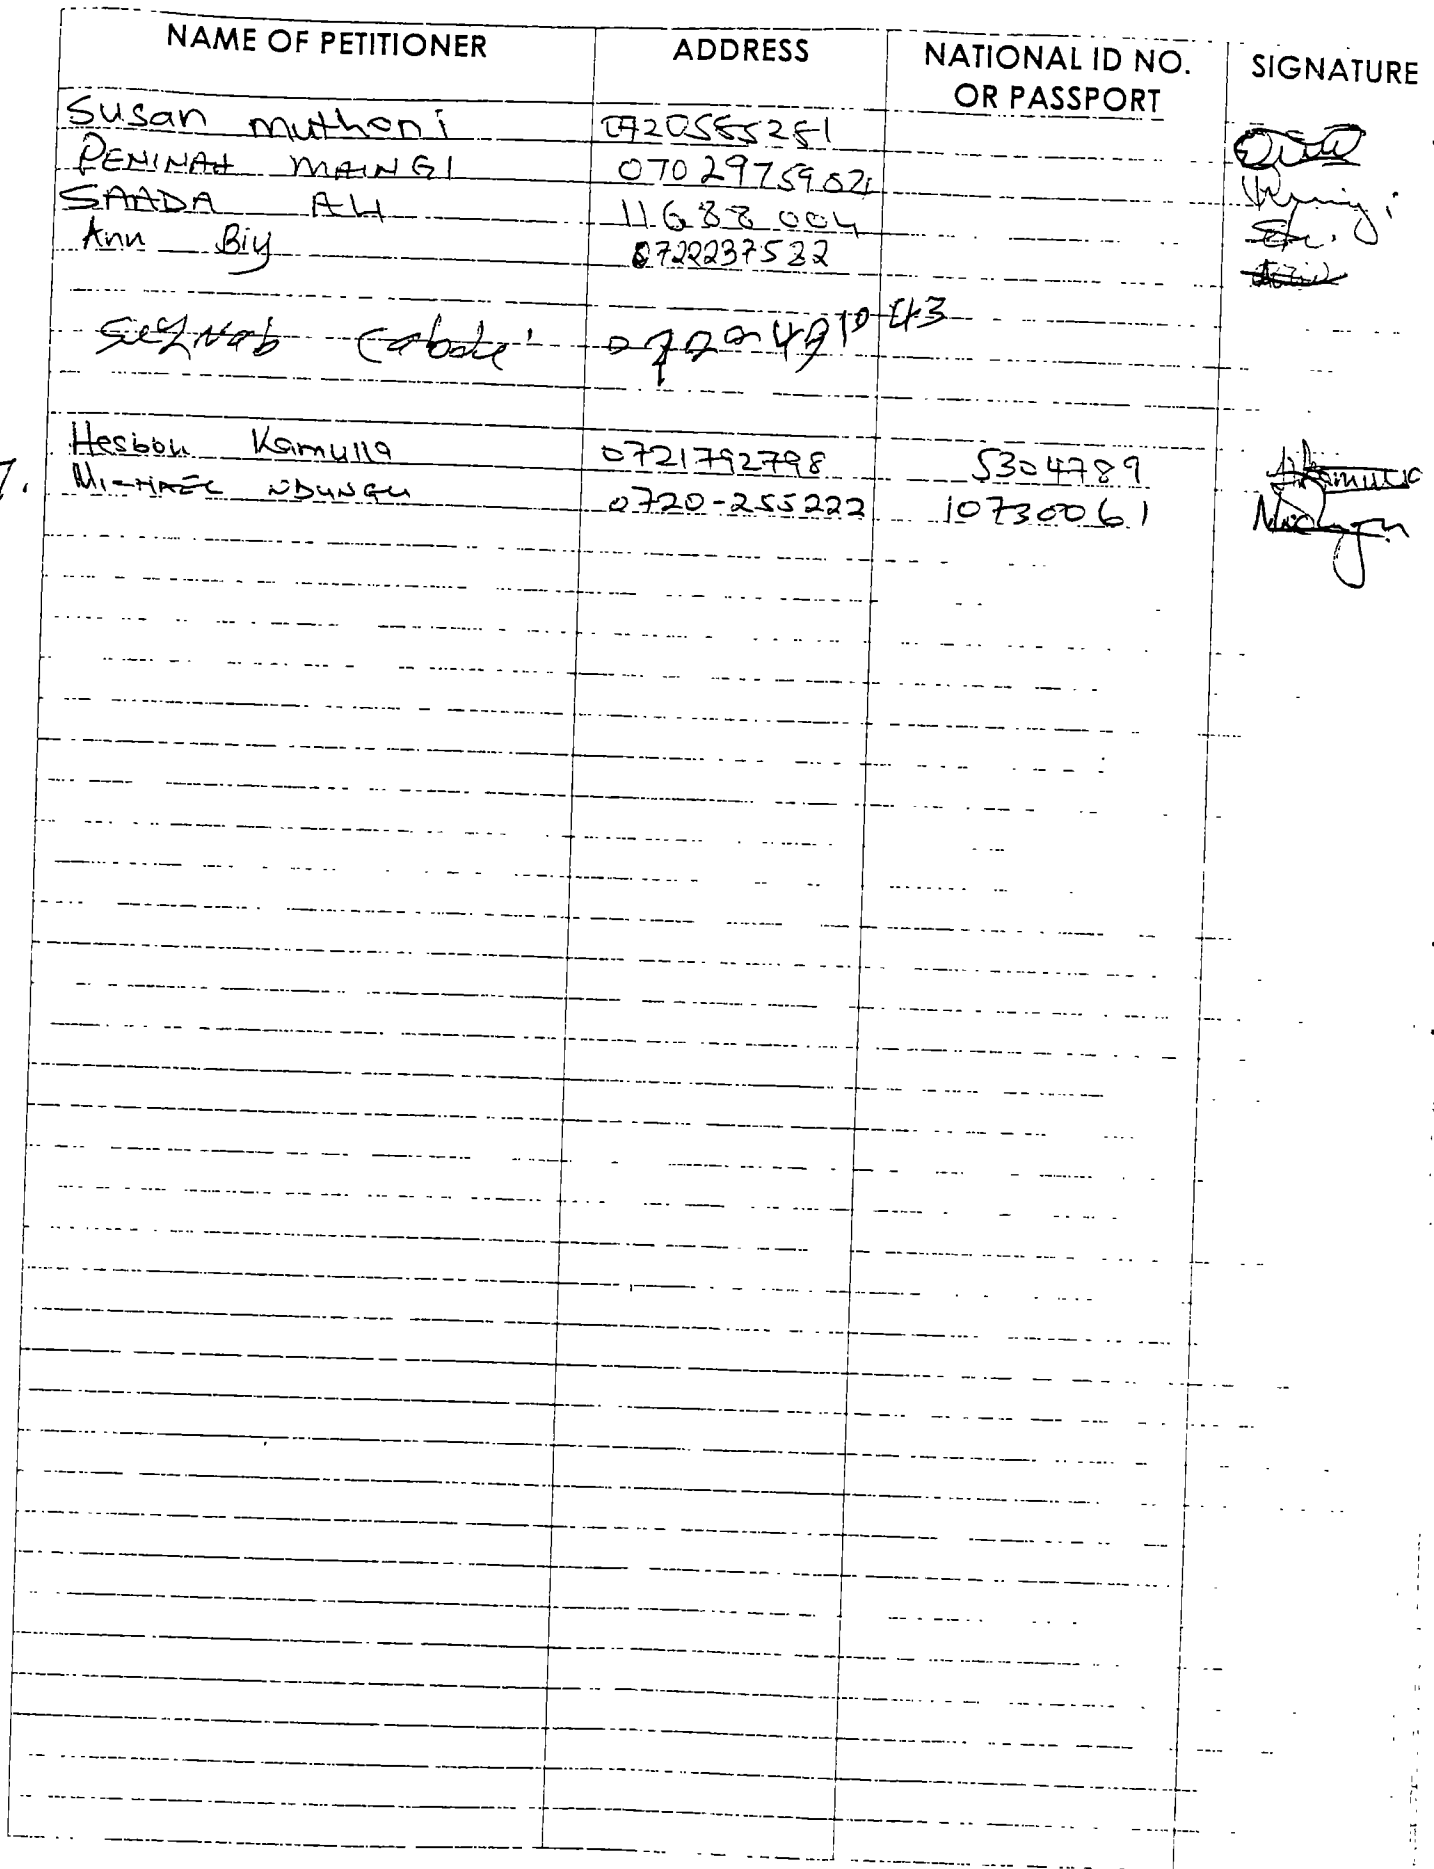 NAME OF PETITIONER ADDRESS NATIONAL ID NO. OR PASSPORT SIGNATURE
Susan muthoni 0720585281
PENINAH MAINGI 070297590
SAADA ALI 11688004
Ann Biy 0722237532
Hesbon Kamulla 0721792798 5304789
7. MICHAEL NDUNGU 0720-255222 10730061